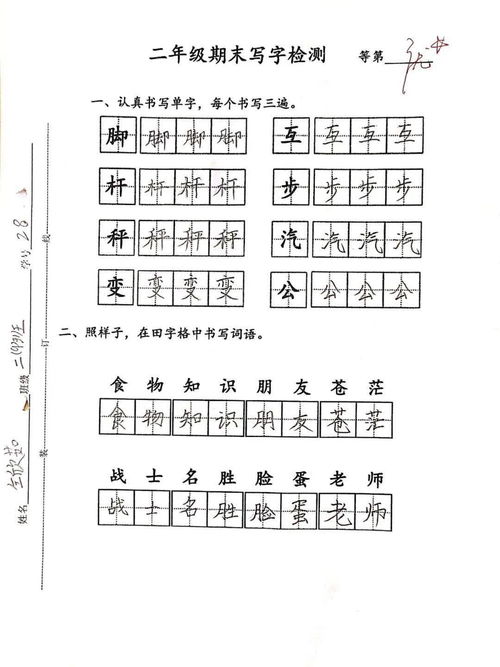 二年级期末写字检测 等第 优☆
一、认真书写单字，每个书写三遍。
脚 脚 脚 脚 互 互 互 互
杆 杆 杆 杆 步 步 步 步
秤 秤 秤 秤 汽 汽 汽 汽
变 变 变 变 公 公 公 公
二、照样子，在田字格中书写词语。
食 物 知 识 朋 友 苍 茫
食 物 知 识 朋 友 苍 茫
战 士 名 胜 脸 蛋 老 师
战 士 名 胜 脸 蛋 老 师
姓名 班级 二 学号 28
装 订 线